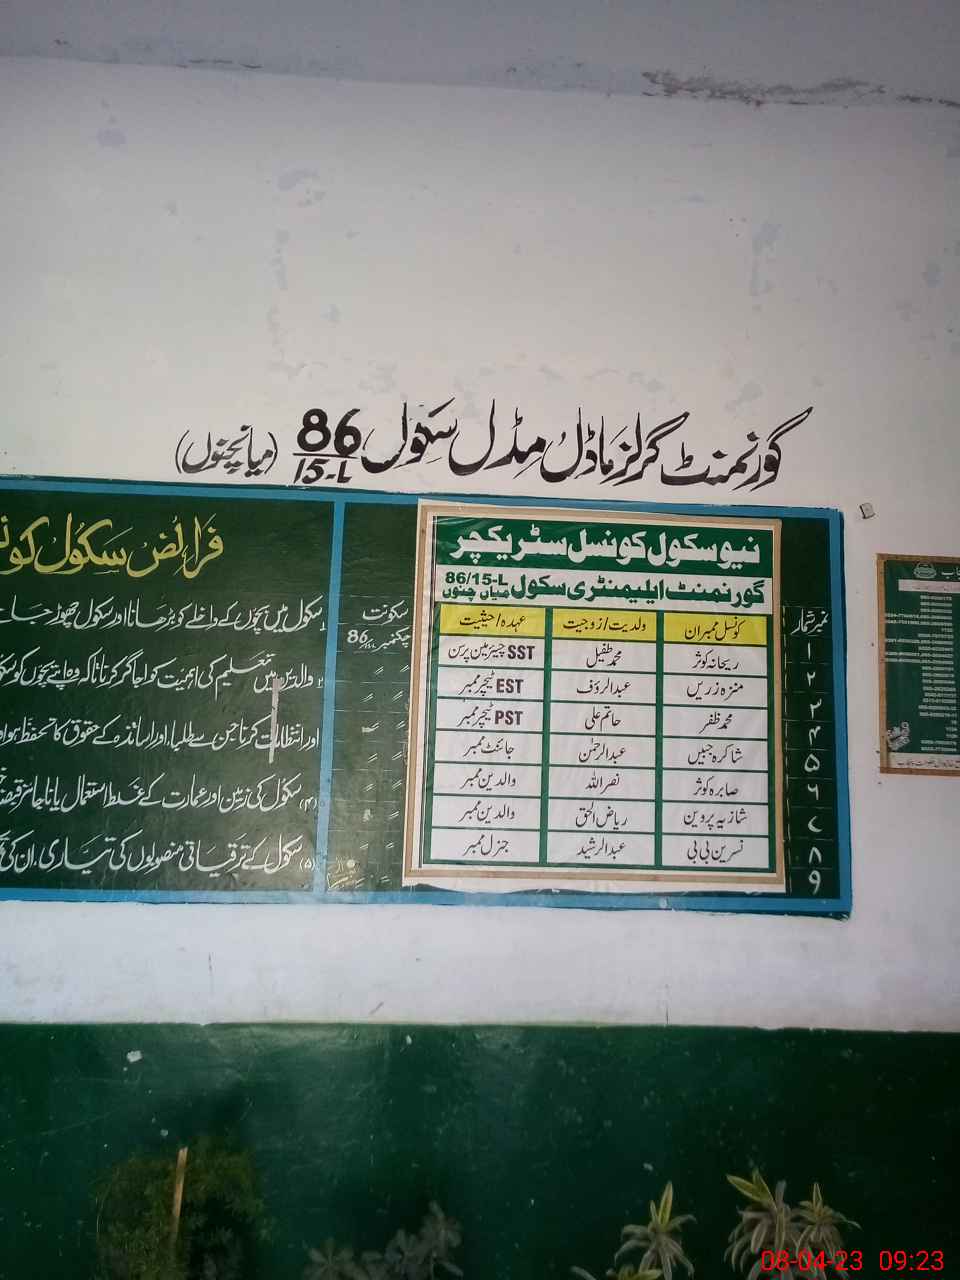 گورنمنٹ گرلز ماڈل مڈل سکول 86/15-L (میانچنوں)
نیو سکول کونسل سٹریکچر
گورنمنٹ ایلیمنٹری سکول 86/15-L میاں چنوں
نمبر شمار کونسل ممبران ولدیت/زوجیت عہدہ/حیثیت سکونت
۱ ریحانہ کوثر محمد طفیل SST چیئرمین پرسن چکنمبر 86/15-L
۲ منزہ زریں عبدالرؤف EST ٹیچر ممبر
۲ محمد ظفر حاتم علی PST ٹیچر ممبر
۴ شاکرہ جبیں عبدالرحمٰن جائنٹ ممبر
۵ صابرہ کوثر نصراللہ والدین ممبر
۶ شازیہ پروین ریاض الحق والدین ممبر
۷ نسرین بی بی عبدالرشید جنرل ممبر
۸
۹
فرائض سکول
سکول میں بچوں کے داخلے کو بڑھانا اور سکول چھوڑ جانے
۲ والدین میں تعلیم کی اہمیت کو اجاگر کرنا تاکہ وہ اپنے بچوں کو
اور انتظامات کرنا جن سے طلباء اور اساتذہ کے حقوق کا تحفظ ہو اور
(۴) سکول کی زمین اور عمارت کے غلط استعمال یا ناجائز قبضہ
(۵) سکول کے ترقیاتی منصوبوں کی تیاری، ان کی
08-04-23 09:23